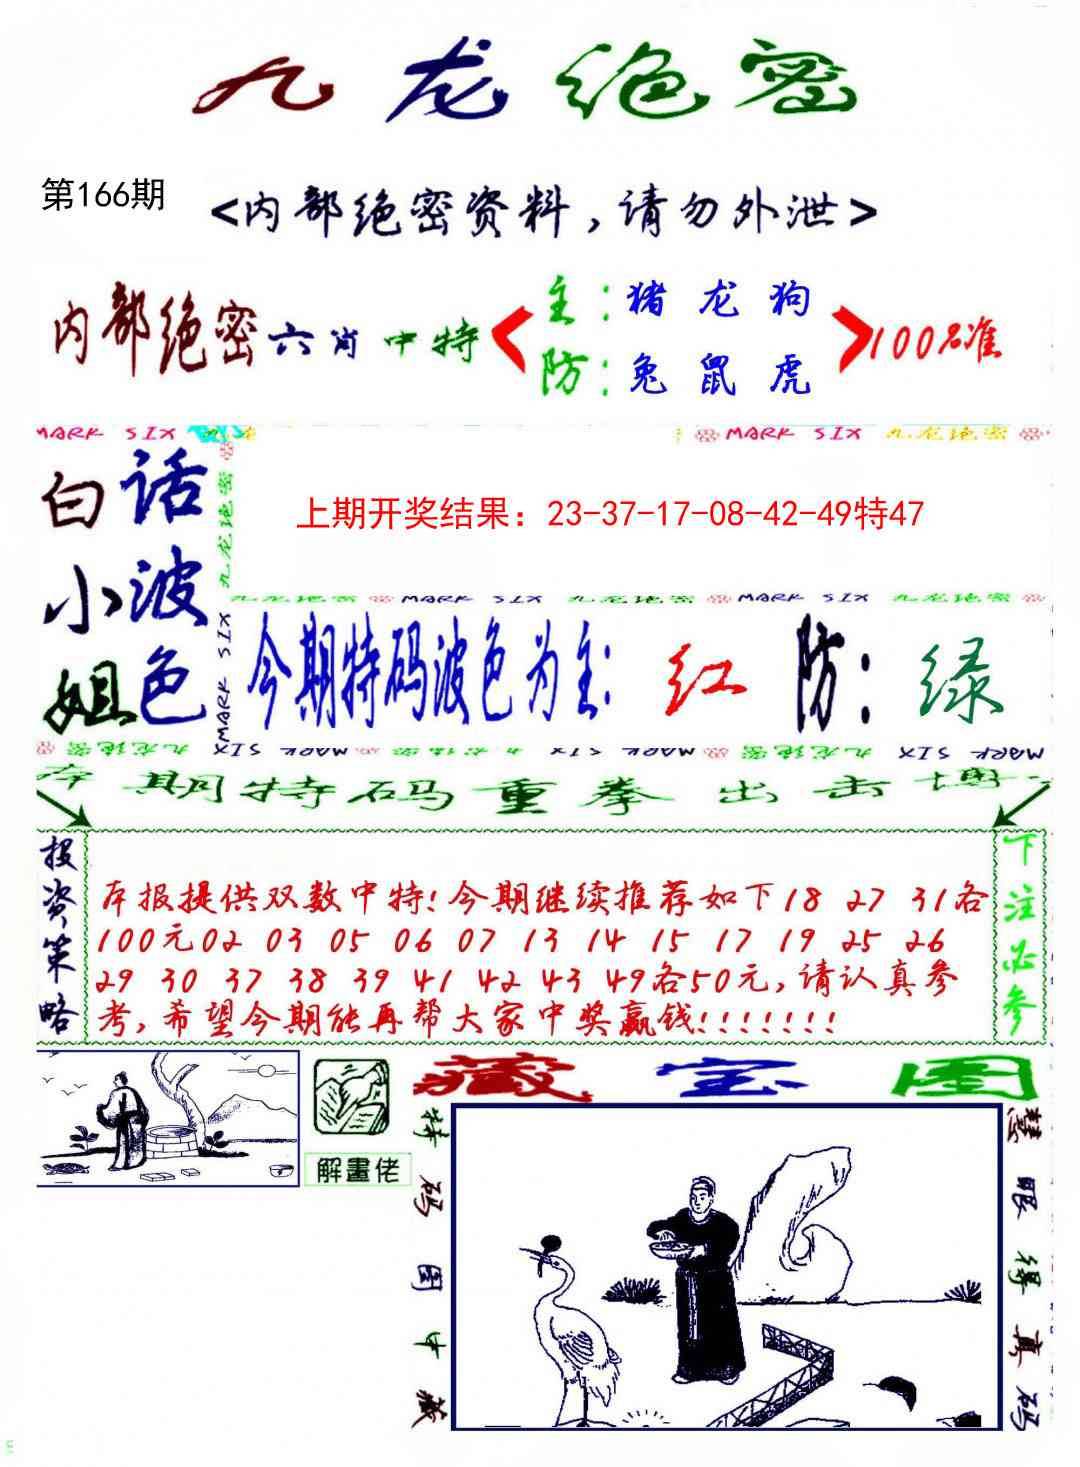 九龙绝密
第166期
<内部绝密资料,请勿外泄>
内部绝密六肖中特
主:猪 龙 狗
防:兔 鼠 虎
100%准
MARK SIX
九龙绝密
MARK SIX 九龙绝密
白话小波姐色
上期开奖结果：23-37-17-08-42-49特47
九龙绝密
MARK SIX
九龙绝密 MARK SIX 九龙绝密 MARK SIX 九龙绝密
今期特码波色为主: 红 防: 绿
九龙绝密 MARK SIX 九龙绝密 MARK SIX 九龙绝密 MARK SIX
本期特码重拳出击博
投资策略
本报提供双数中特!今期继续推荐如下18 27 31各
100元02 03 05 06 07 13 14 15 17 19 25 26
29 30 37 38 39 41 42 43 49各50元,请认真参
考,希望今期能再帮大家中奖赢钱!!!!!!!
下注必参
解畫佬
藏宝图
特码图中藏
慧眼得真码